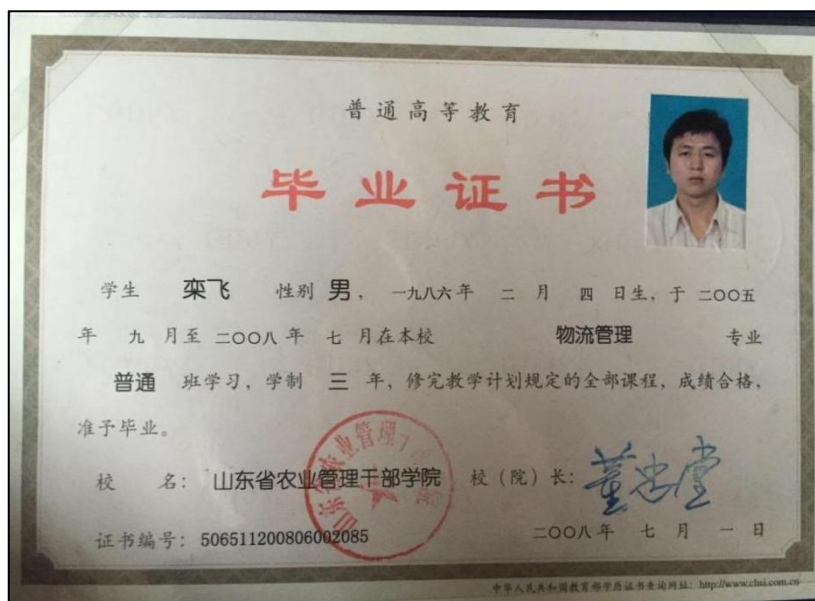 普通高等教育
毕业证书
学生 栾飞 性别 男，一九八六年 二 月 四 日生，于 二〇〇五
年 九 月至 二〇〇八 年 七 月在本校 物流管理 专业
普通 班学习，学制 三 年，修完教学计划规定的全部课程，成绩合格，
准予毕业。
校 名：山东省农业管理干部学院 校（院）长：董忠堂
证书编号：506511200806002085 二〇〇八年 七 月 一 日
山东省农业管理干部学院
中华人民共和国教育部学历证书查询网址：http://www.chsi.com.cn